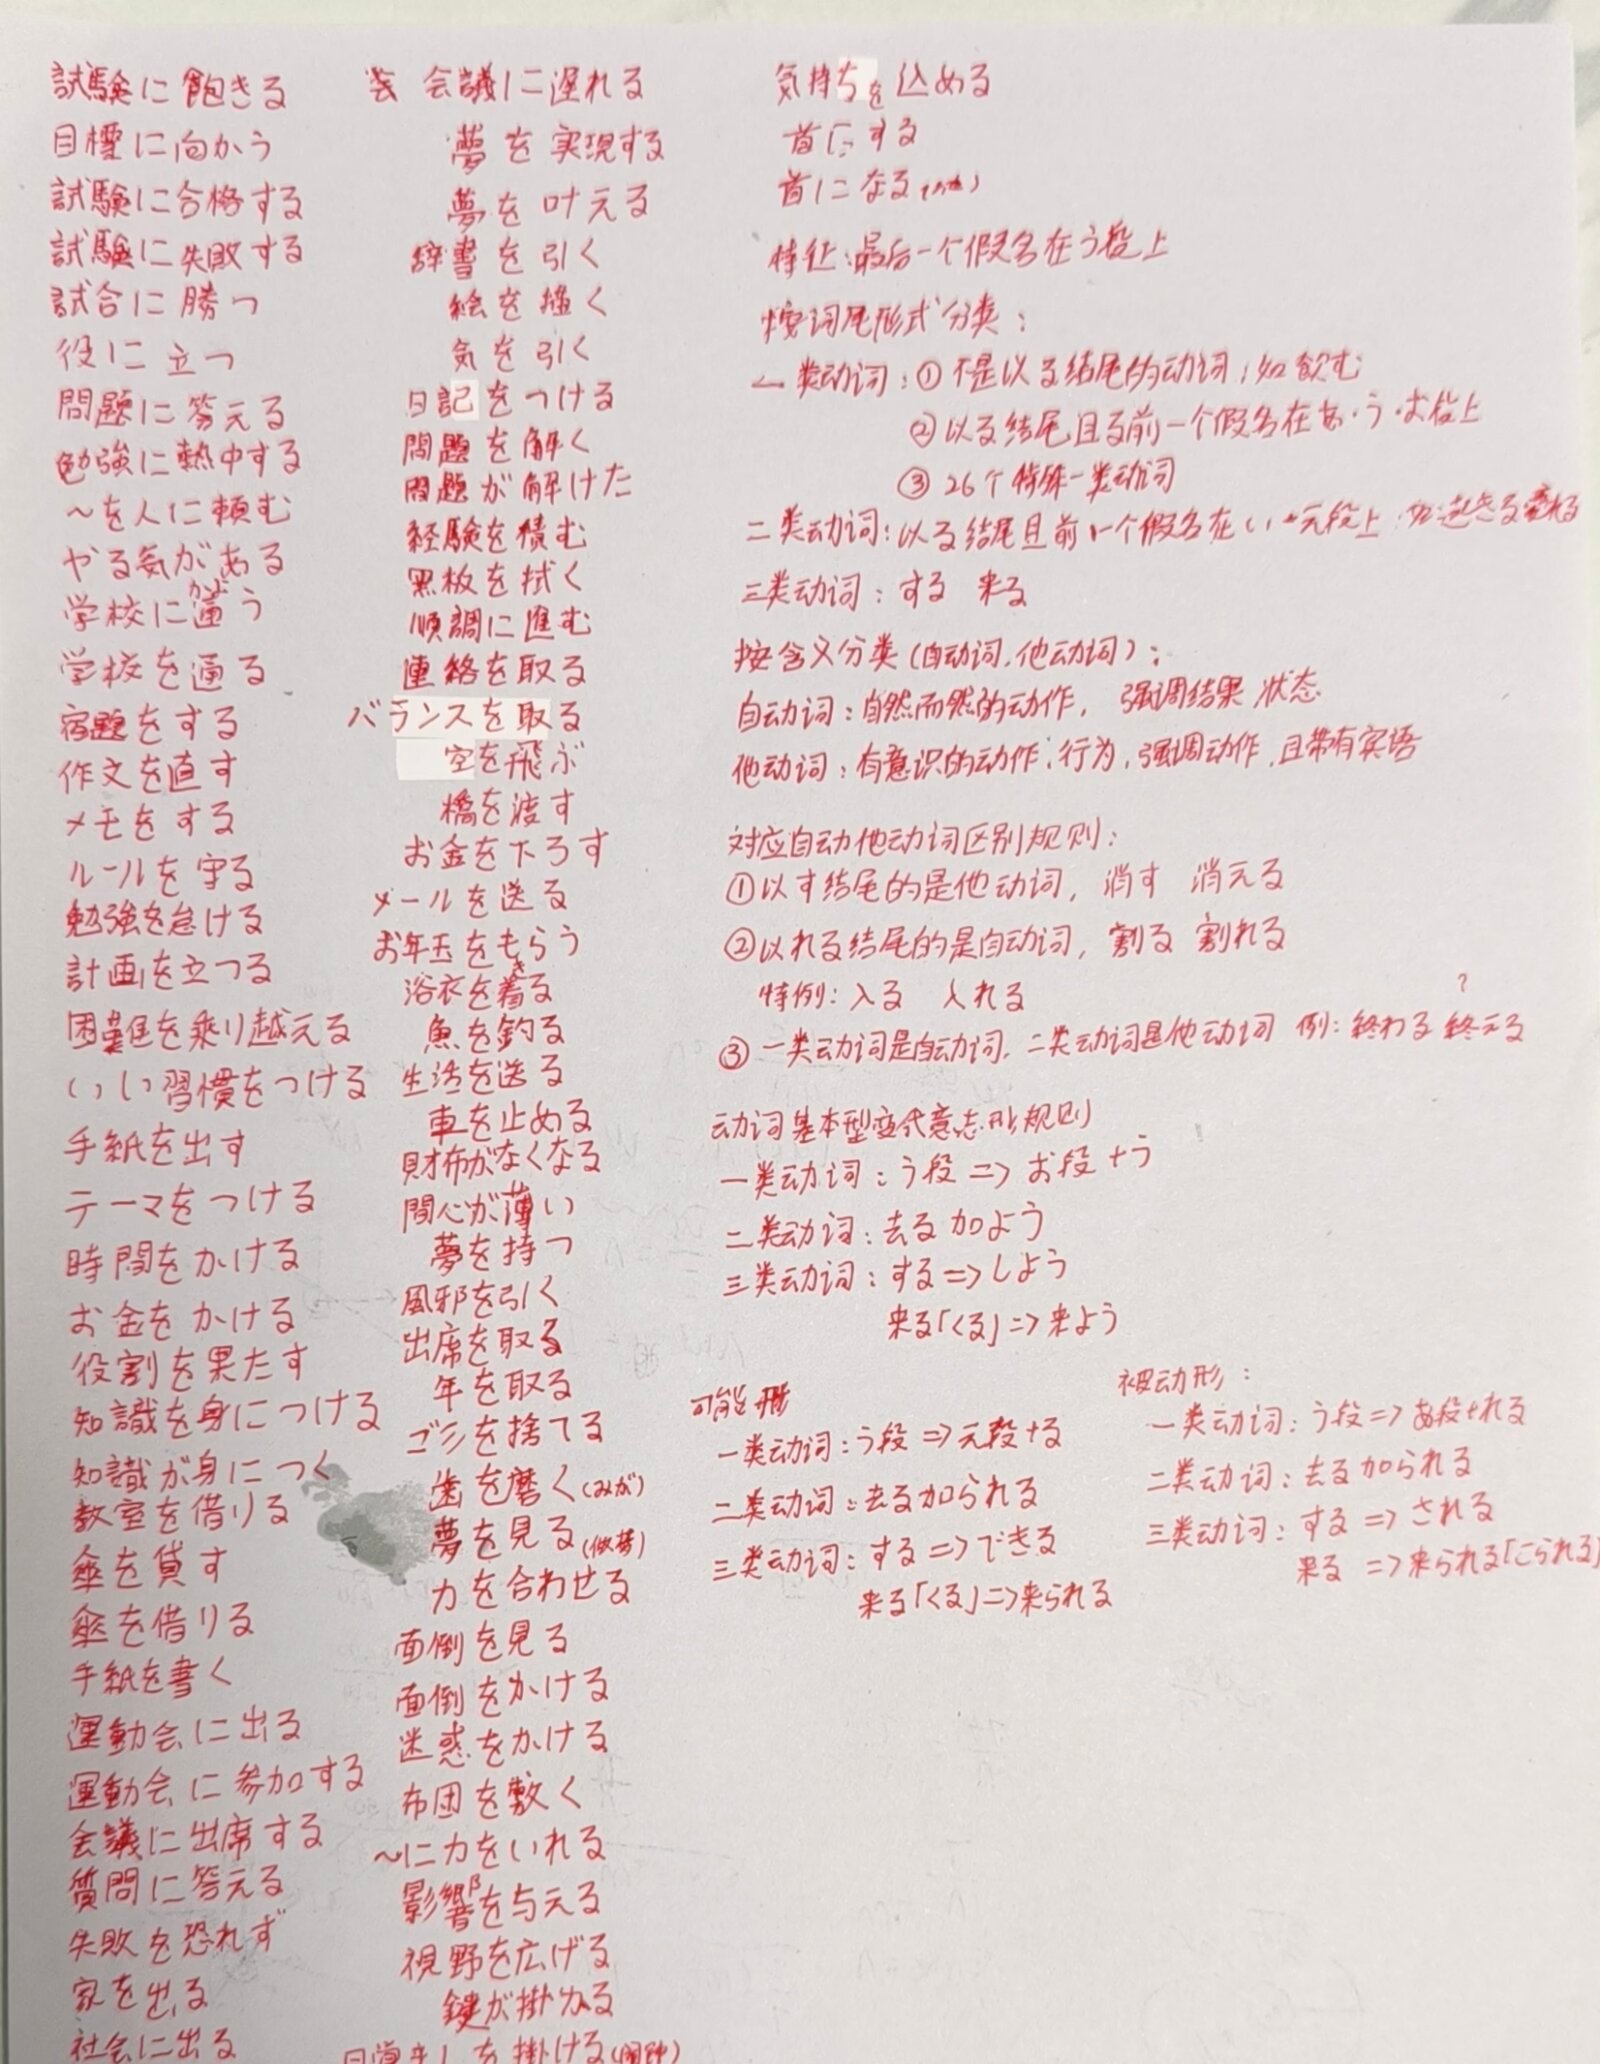 試験に飽きる
目標に向かう
試験に合格する
試験に失敗する
試合に勝つ
役に立つ
問題に答える
勉強に熱中する
～を人に頼む
やる気がある
学校に通う
かよ
学校を通る
宿題をする
作文を直す
メモをする
ルールを守る
勉強を怠ける
計画を立つる
困難を乗り越える
いい習慣をつける
手紙を出す
テーマをつける
時間をかける
お金をかける
役割を果たす
知識を身につける
知識が身につく
教室を借りる
傘を貸す
傘を借りる
手紙を書く
運動会に出る
運動会に参加する
会議に出席する
質問に答える
失敗を恐れず
家を出る
社会に出る
会議に遅れる
夢を実現する
夢を叶える
辞書を引く
絵を描く
気を引く
日記をつける
問題を解く
問題が解けた
経験を積む
黒板を拭く
順調に進む
連絡を取る
バランスを取る
空を飛ぶ
橋を渡す
お金を下ろす
メールを送る
お年玉をもらう
浴衣を着る
き
魚を釣る
生活を送る
車を止める
財布がなくなる
関心が薄い
夢を持つ
風邪を引く
出席を取る
年を取る
ゴミを捨てる
歯を磨く(みが)
夢を見る(做梦)
力を合わせる
面倒を見る
面倒をかける
迷惑をかける
布団を敷く
～に力をいれる
影響を与える
視野を広げる
鍵が掛かる
を掛ける
気持ちを込める
首にする
首になる
特征:最后一个假名在う段上
按词尾形式分类:
一类动词:①不是以る结尾的动词,如飲む
②以る结尾且る前一个假名在あ・う・お段上
③26个特殊一类动词
二类动词:以る结尾且前一个假名在い・え段上
三类动词:する 来る
按含义分类(自动词.他动词):
自动词:自然而然的动作, 强调结果 状态
他动词:有意识的动作.行为,强调动作,且带有宾语
对应自动他动词区别规则:
①以す结尾的是他动词, 消す 消える
②以れる结尾的是自动词, 割る 割れる
特例:入る 入れる
③一类动词是自动词,二类动词是他动词 例:終わる 終える
?
动词基本型变成意志形规则
一类动词:う段=>お段+う
二类动词:去る加よう
三类动词:する=>しよう
来る「くる」=>来よう
可能形
一类动词:う段=>え段+る
二类动词:去る加られる
三类动词:する=>できる
来る「くる」=>来られる
被动形:
一类动词:う段=>あ段+れる
二类动词:去る加られる
三类动词:する=>される
来る =>来られる「こられる」